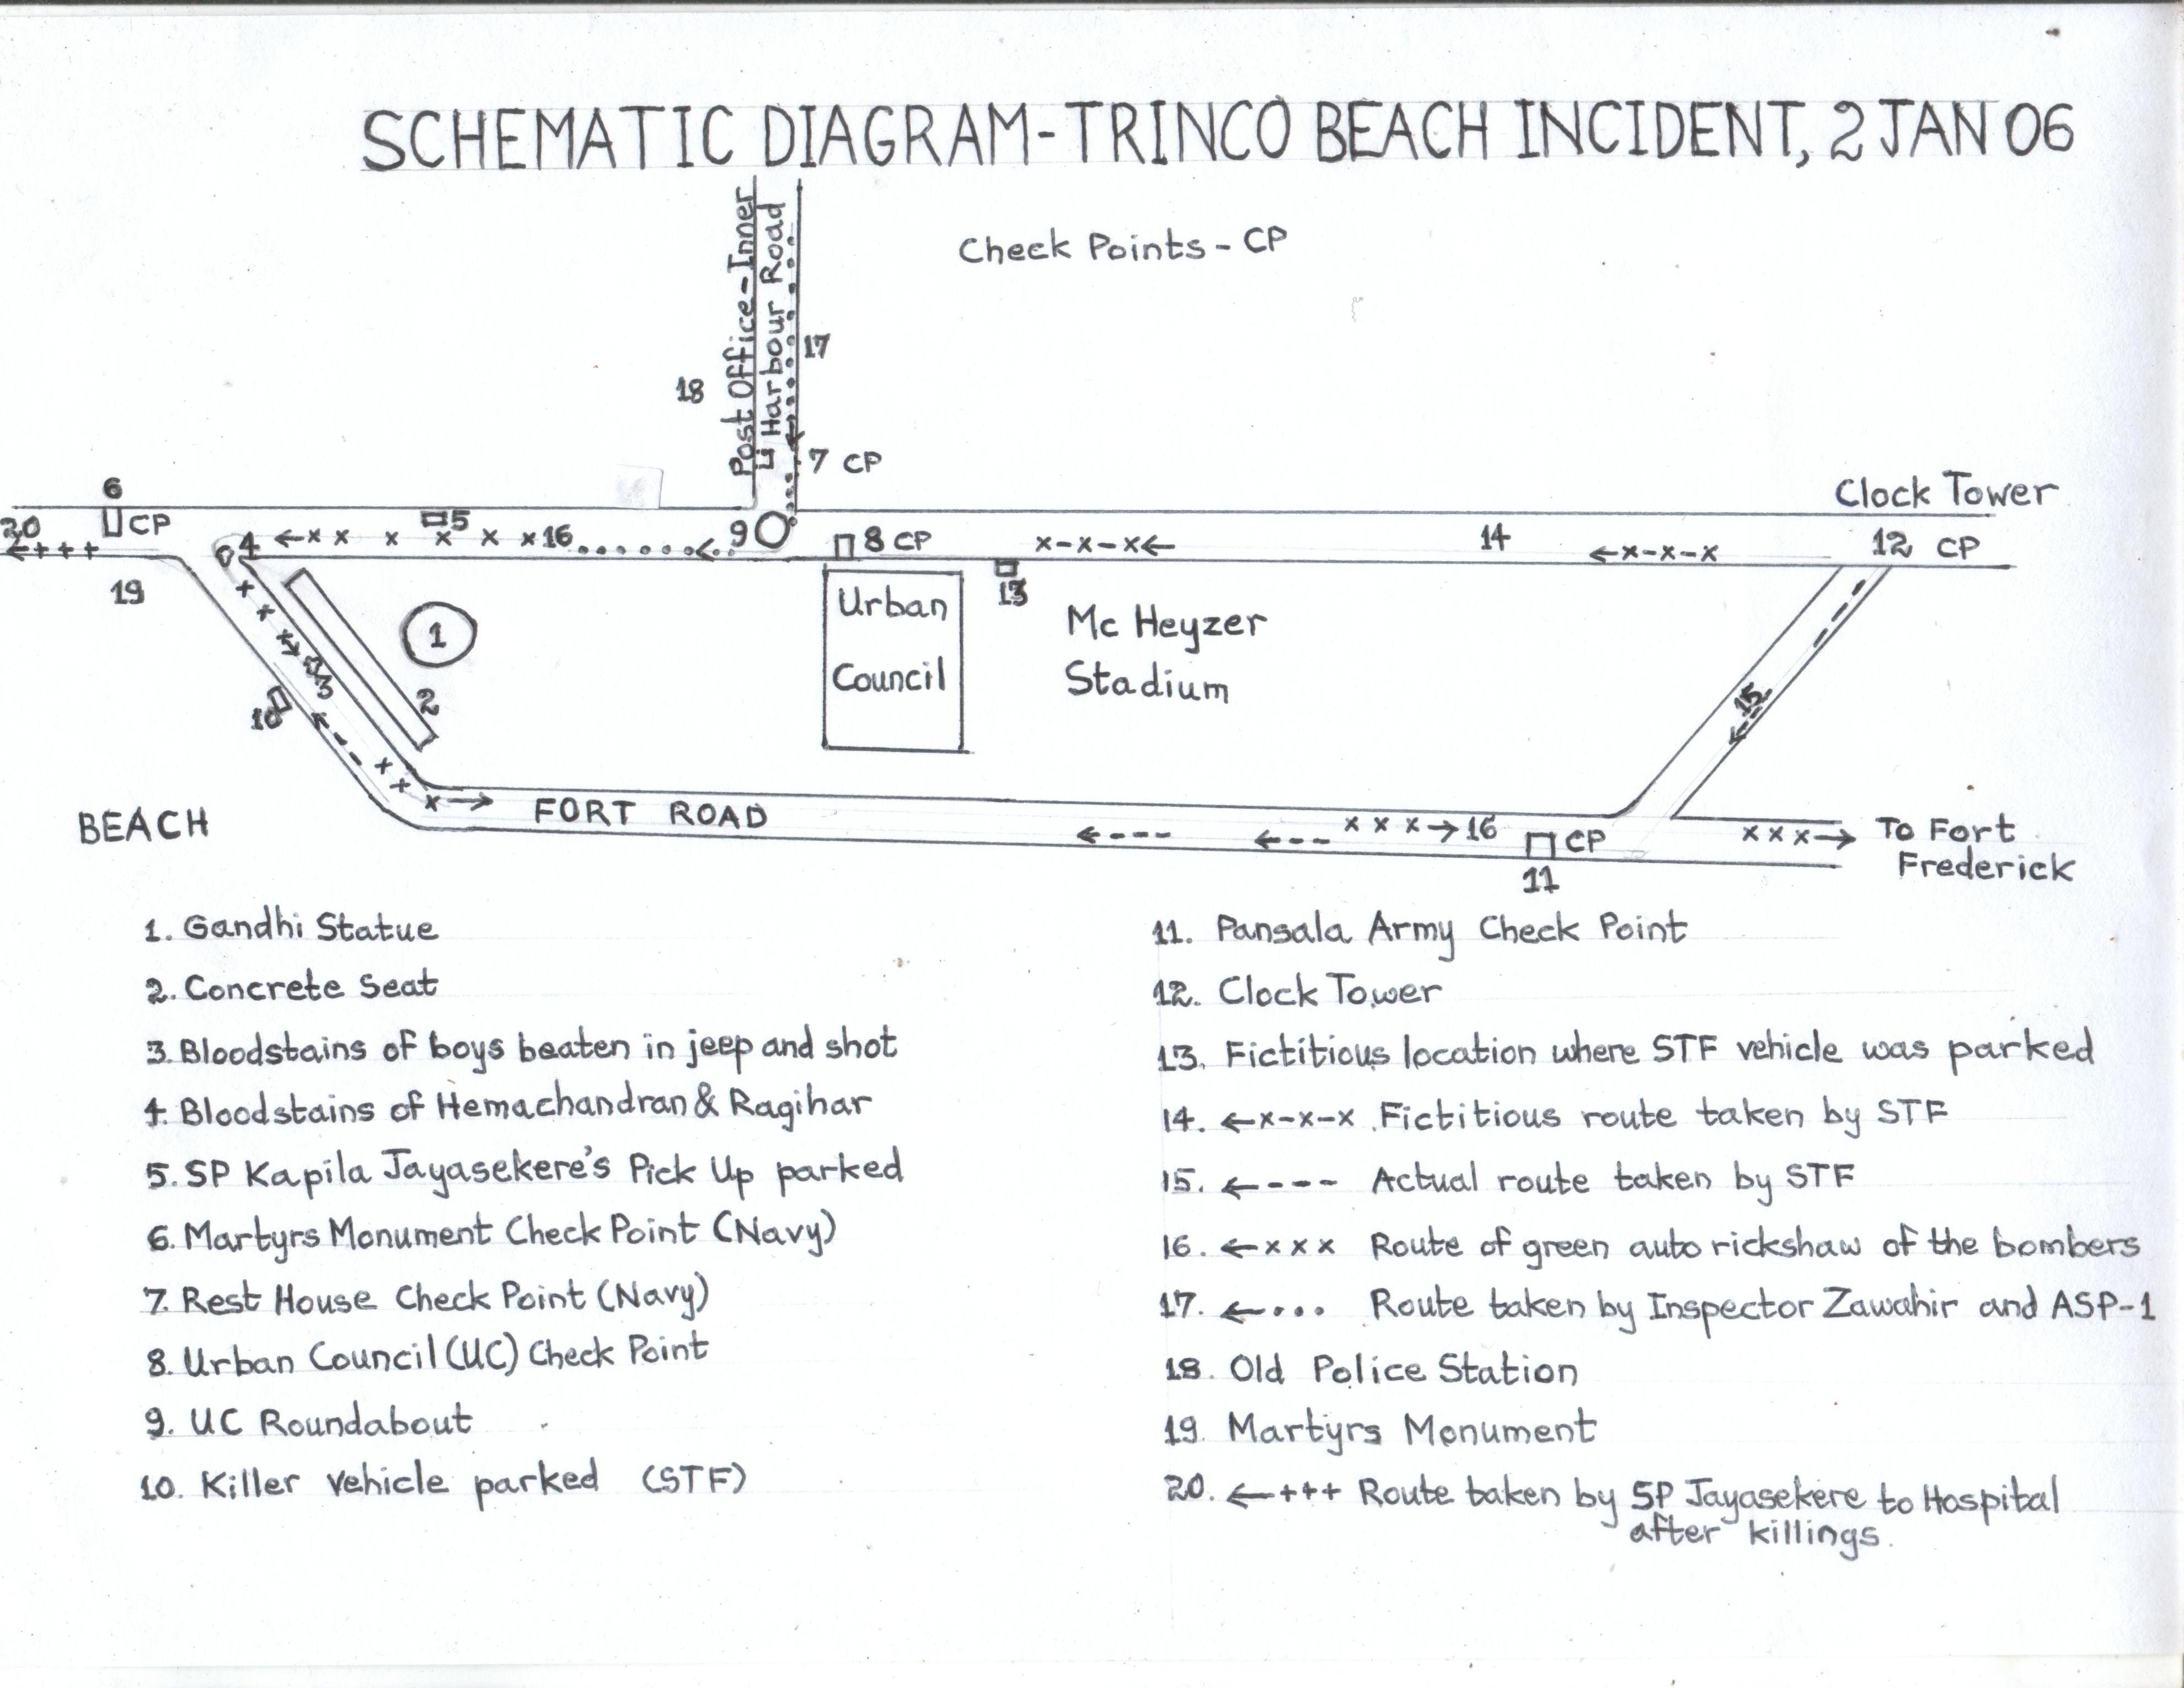 SCHEMATIC DIAGRAM-TRINCO BEACH INCIDENT, 2 JAN 06
Post Office-Inner
Harbour Road
Check Points - CP
17
18
7 CP
6
CP
20
←+++
19
4
←x x x x x x16
5
9
8 CP
x-x-x←
14
←x-x-x
Clock Tower
12 CP
13
Urban
Council
Mc Heyzer
Stadium
1
2
3
10
15
BEACH
FORT ROAD
←---
←---
x x x→16
CP
11
xxx→ To Fort
Frederick
1. Gandhi Statue
2. Concrete Seat
3. Bloodstains of boys beaten in jeep and shot
4. Bloodstains of Hemachandran & Ragihar
5. SP Kapila Jayasekere's Pick Up parked
6. Martyrs Monument Check Point (Navy)
7. Rest House Check Point (Navy)
8. Urban Council (UC) Check Point
9. UC Roundabout
10. Killer vehicle parked (STF)
11. Pansala Army Check Point
12. Clock Tower
13. Fictitious location where STF vehicle was parked
14. ←x-x-x Fictitious route taken by STF
15. ←--- Actual route taken by STF
16. ←xxx Route of green auto rickshaw of the bombers
17. ←... Route taken by Inspector Zawahir and ASP-1
18. Old Police Station
19. Martyrs Monument
20. ←+++ Route taken by SP Jayasekere to Hospital
after killings.